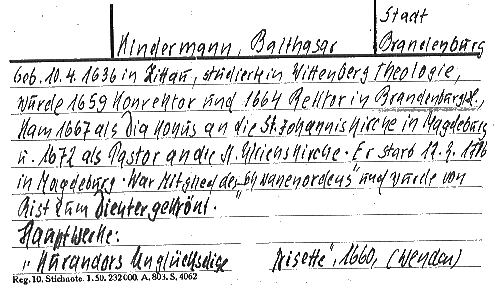 Stadt
Kindermann, Balthasar Brandenburg
Geb. 10.4.1636 in Zittau, studierte in Wittenberg Theologie,
wurde 1659 Konrektor und 1664 Rektor in Brandenburg
kam 1667 als Diakonus an die St. Johanniskirche in Magdeburg
u. 1672 als Pastor an die St. Ulrichskirche. Er starb
in Magdeburg. War Mitglied des "Schwanenordens" und wurde von
Rist zum Dichter gekrönt.
Hauptwerke:
"Kurandors Unglückselige Nisette", 1660, (Wendan)
Reg. 10. Stichnote. 1. 50. 232000. A. 803. S. 4062